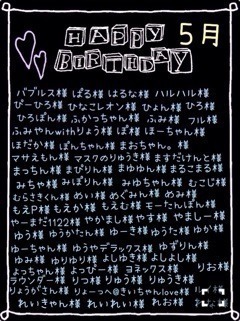 HAPPY 5月
BIRTHDAY
バブルス様 ぱる様 はるな様 ハルハル様
ぴーひろ様 ひなこレオン様 ひょん様 ひろ様
ひろぽん様 ふかっちゃん様 ふみ様 フル様
ふみやんwithりょう様 ぽ様 ほーちゃん様
ほだか様 ぽんちゃん様 まおちゃん。様
マサえもん様 マスクのりゅうき様 ますだけんと様
まっちん様 まぴりん様 まゆゆん様 まるこまる様
みちゃ様 みぽりん様 みゆちゃん様 むこじ様
むらさきくん様 めい様 めぐみん様 めめみ様
もえP様 もえか様 もえむ様 モーたんぽん様
やーまだ1122様 やかまし様 やす様 やましー様
ゆう様 ゆうかたん様 ゆーき様 ゆうた様 ゆか様
ゆーちゃん様 ゆうやデラックス様 ゆずりん様
ゆみ様 ゆりゆり様 よしゆき様 よしよし様
よっちゃん様 よっぴー様 ヨネックス様 りお様
ラウンダー様 りつ様 りゅう様 りゅうき様
りょうが様 りょーっへ@きいちゃんlove様
れいきゃん様 れいれい様 れお様